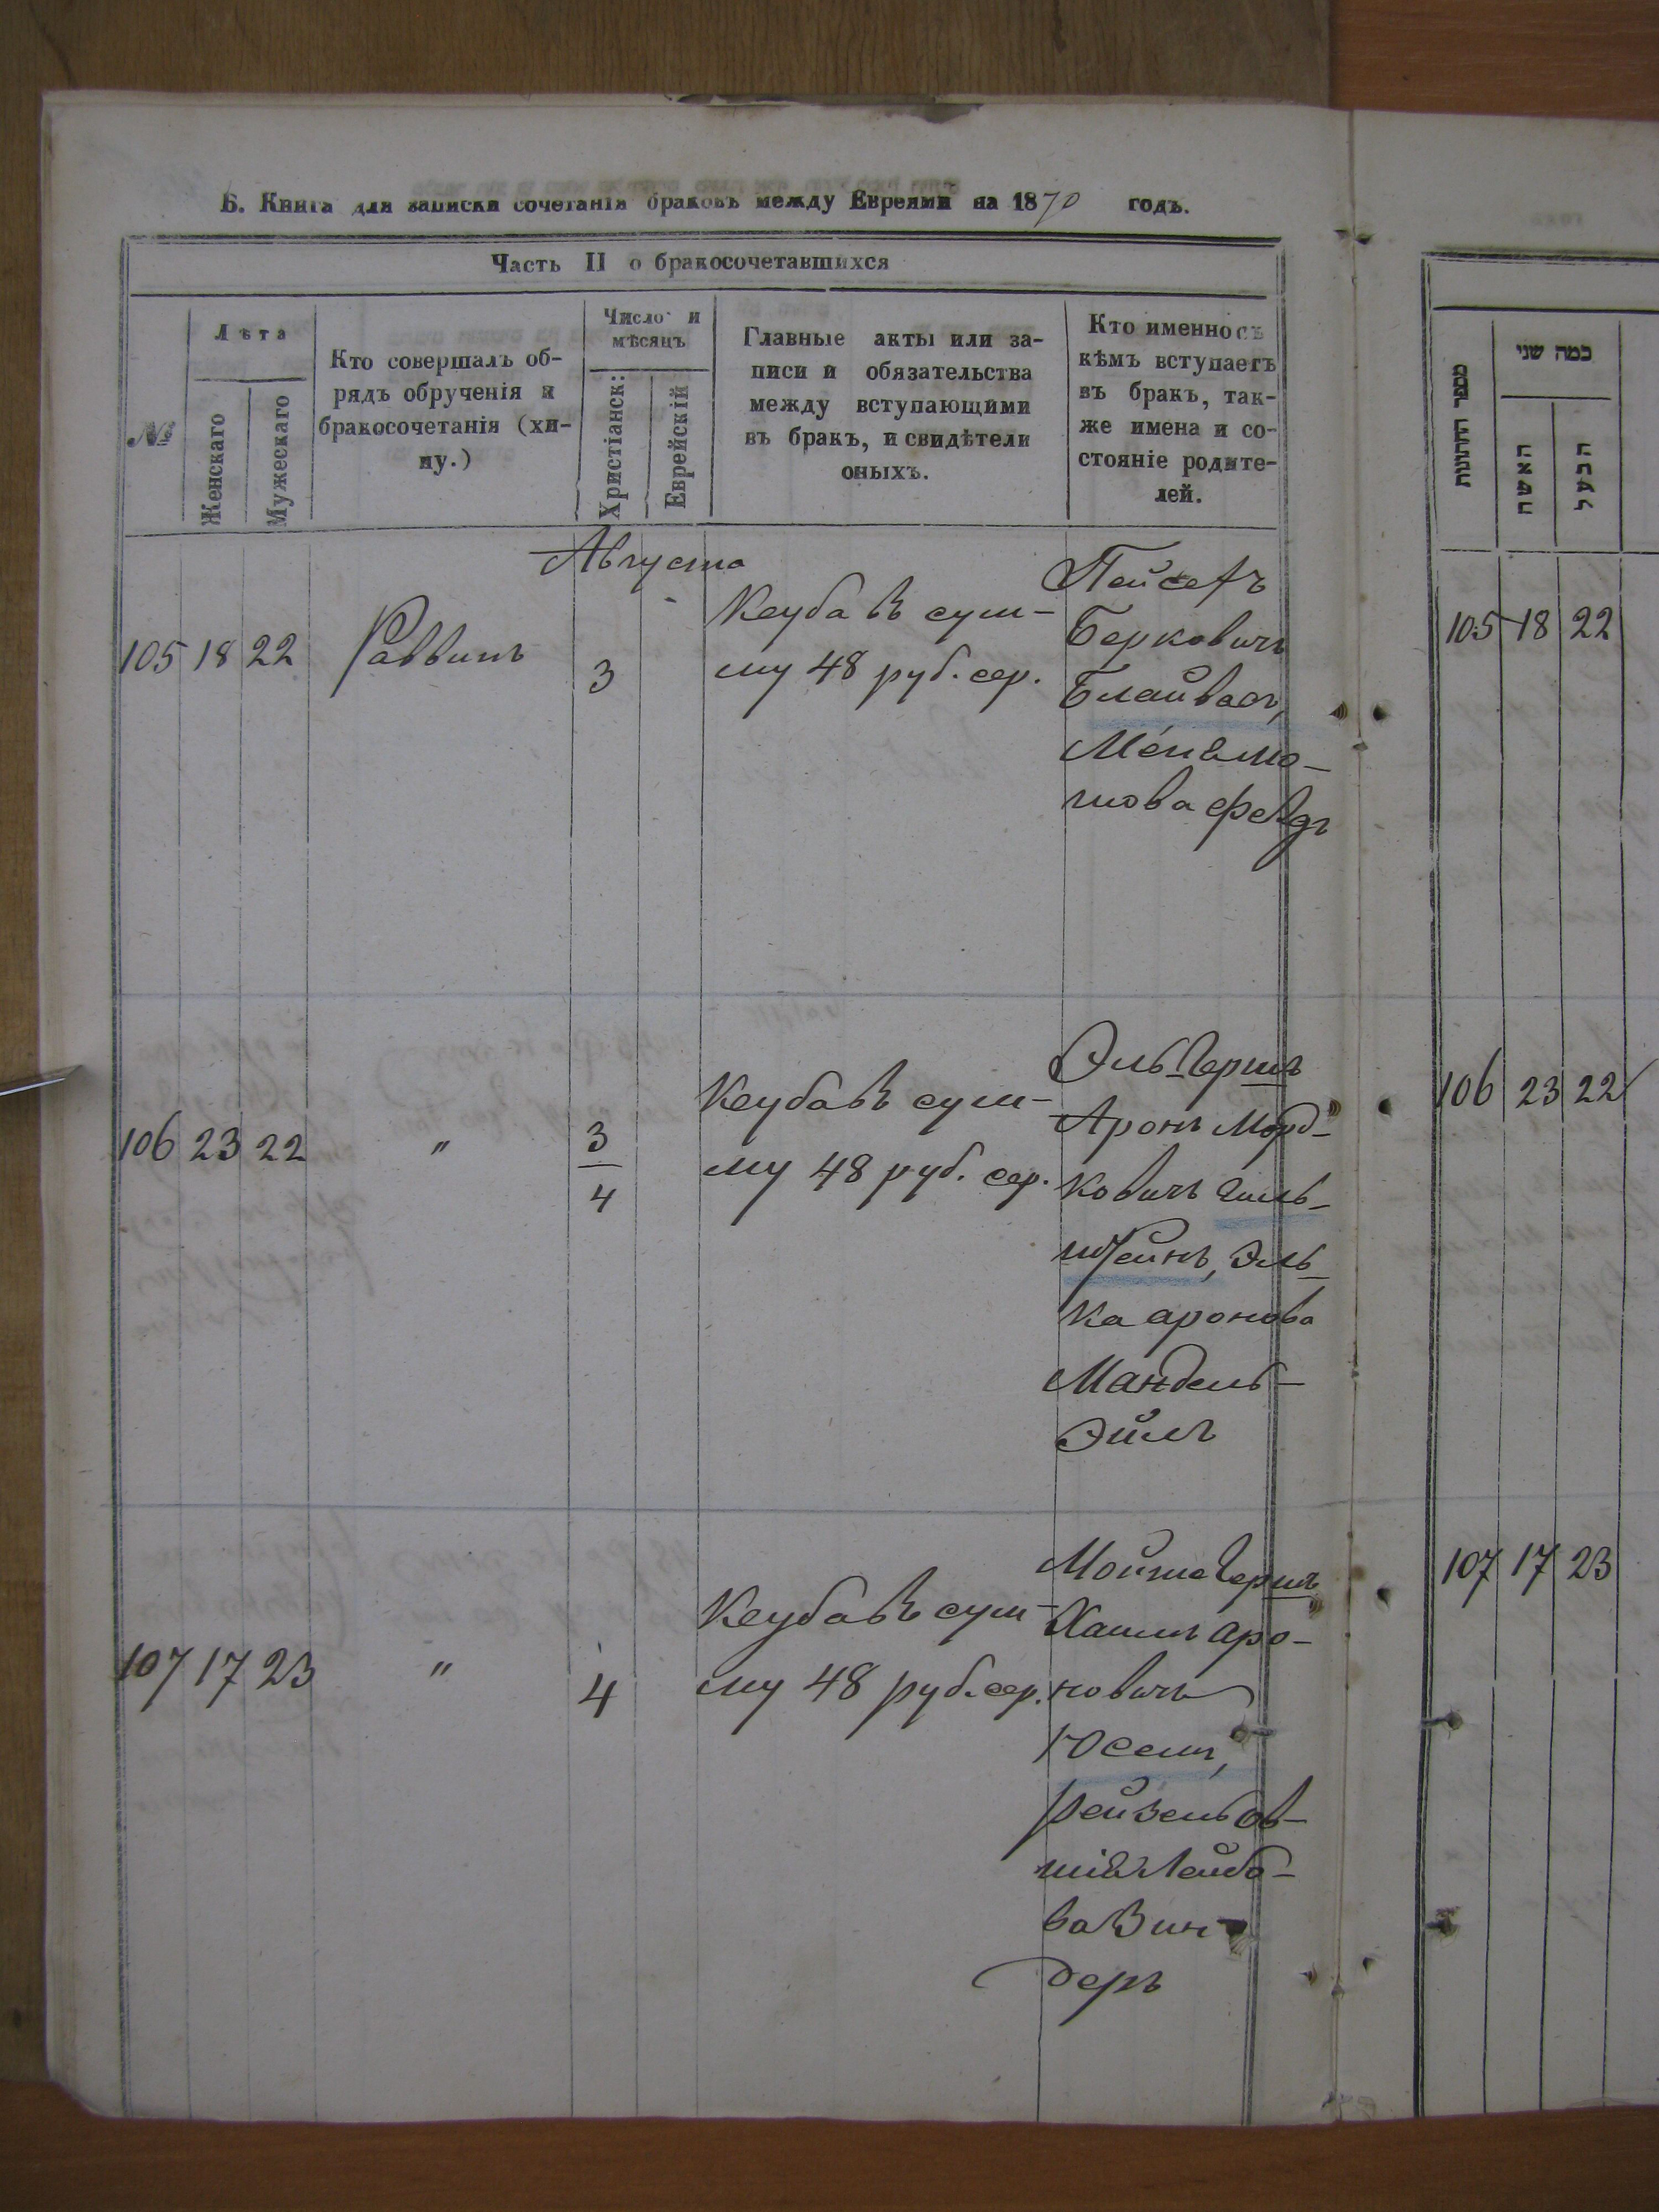 Б. Книга для записки сочетанія браковъ между Евреями на 1870 годъ.
Часть II о бракосочетавшихся
№
Лѣта
Женскаго
Мужескаго
Кто совершалъ об-
рядъ обрученія и
бракосочетанія (хи-
пу.)
Число и
мѣсяцъ
Христіанск:
Еврейскій
Главные акты или за-
писи и обязательства
между вступающими
въ бракъ, и свидѣтели
оныхъ.
Кто именно съ
кѣмъ вступаетъ
въ бракъ, так-
же имена и со-
стояніе родите-
лей.
Августа
105 18 22 Раввинъ 3
Кеуба въ сум-
му 48 руб. сер.
Пейсахъ
Берковичъ
Блайвасъ,
106 23 22 " 3
4
Кеуба въ сум-
му 48 руб. сер.
Эль Гершъ
АронъМорд-
ковичъ Гиль-
штейнъ, Эль-
ка аронова
Мандель-
Эйль
107 17 23 " 4
Кеуба въ сум-
му 48 руб. сер.
Мойше Гершъ
Хаимъ аро-
новичъ
Юсем,
Рейзель
Лейбо-
ва Бин-
деръ
מספר החתונות
כמה שני
האשה
הבעל
105 18 22
106 23 22
107 17 23